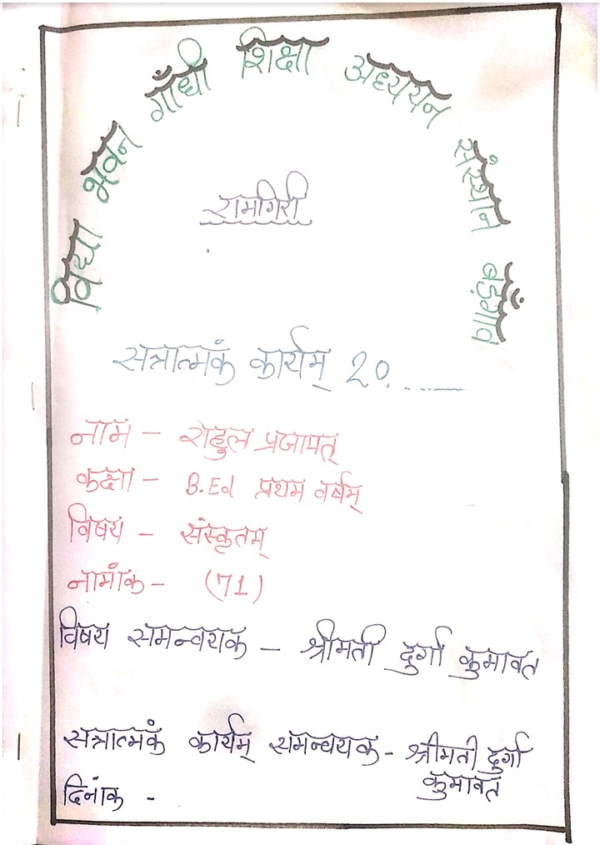 विद्या भवन गाँधी शिक्षा अध्ययन संस्थान बड़गाँव
रामगिरी
सत्रात्मकं कार्यम् 20.......
नाम - राहुल प्रजापत्
कक्षा - B.Ed प्रथम वर्षम्
विषय - संस्कृतम्
नामांक - (71)
विषय समन्वयक - श्रीमती दुर्गा कुमावत
सत्रात्मकं कार्यम् समन्वयक - श्रीमती दुर्गा
कुमावत
दिनांक -